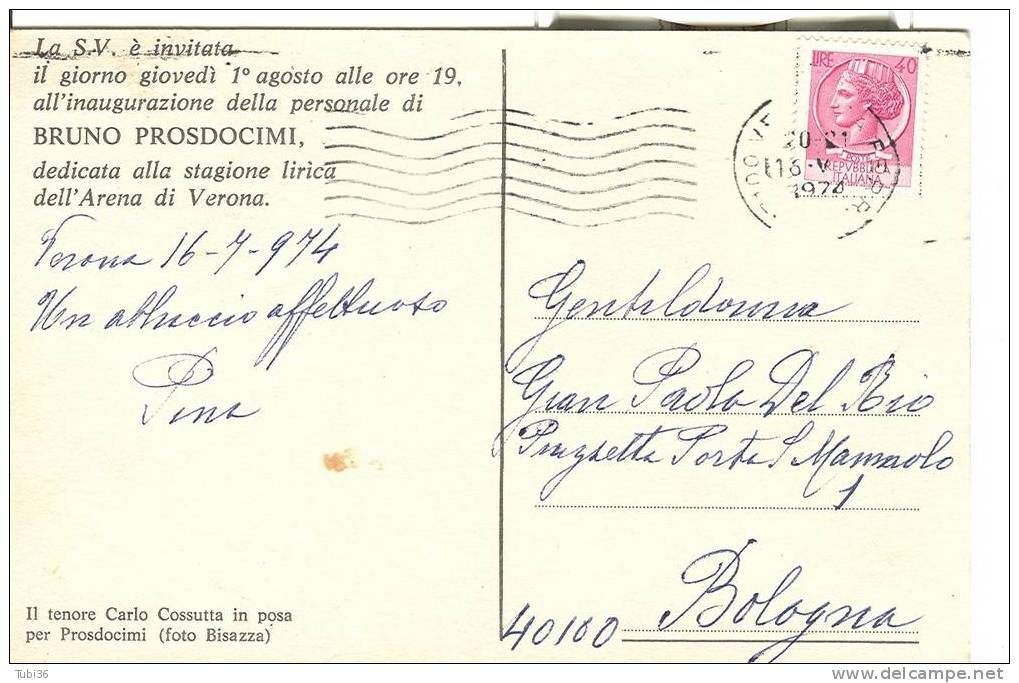 La S.V. è invitata
il giorno giovedì 1° agosto alle ore 19,
all'inaugurazione della personale di
BRUNO PROSDOCIMI,
dedicata alla stagione lirica
dell'Arena di Verona.
Verona 16-7-974
Un abbraccio affettuoso
Pina
Il tenore Carlo Cossutta in posa
per Prosdocimi (foto Bisazza)
LIRE 40
POSTE
REPVBBLICA
ITALIANA
20-21
16-V
1974
Gentildonna
Gian Paola Del Rio
Piazzetta Porta S. Mamolo
1
40100 Bologna
Tubi36
delcampe.net